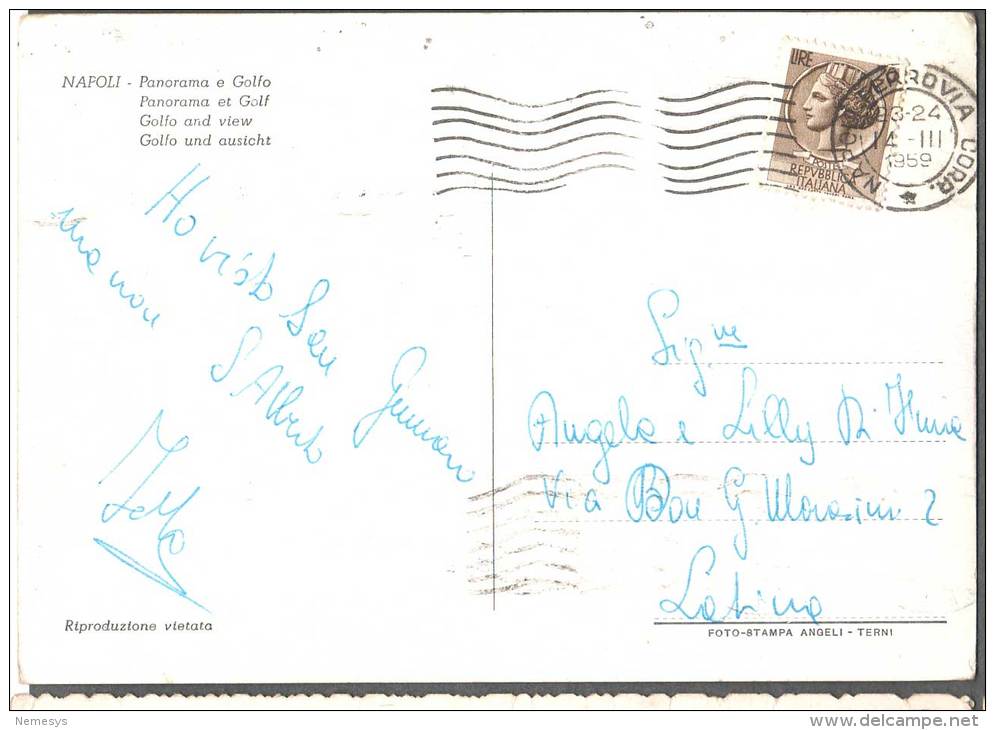 NAPOLI - Panorama e Golfo
Panorama et Golf
Golfo and view
Golfo und ausicht
LIRE
POSTE
REPVBBLICA
ITALIANA
FERROVIA CORR.
23-24
14-III
1959
Ho visto San Gennaro
ma non S Alberto
Sig.ne
Angela e Lilly Di
Via G Morosini 2
Latina
Riproduzione vietata
FOTO-STAMPA ANGELI - TERNI
Nemesys
www.delcampe.net